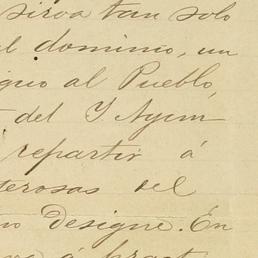 sirva tan solo
al dominio, un
iguo al Pueblo,
del Y Ayun
repartir á
terosas del
no designe. En